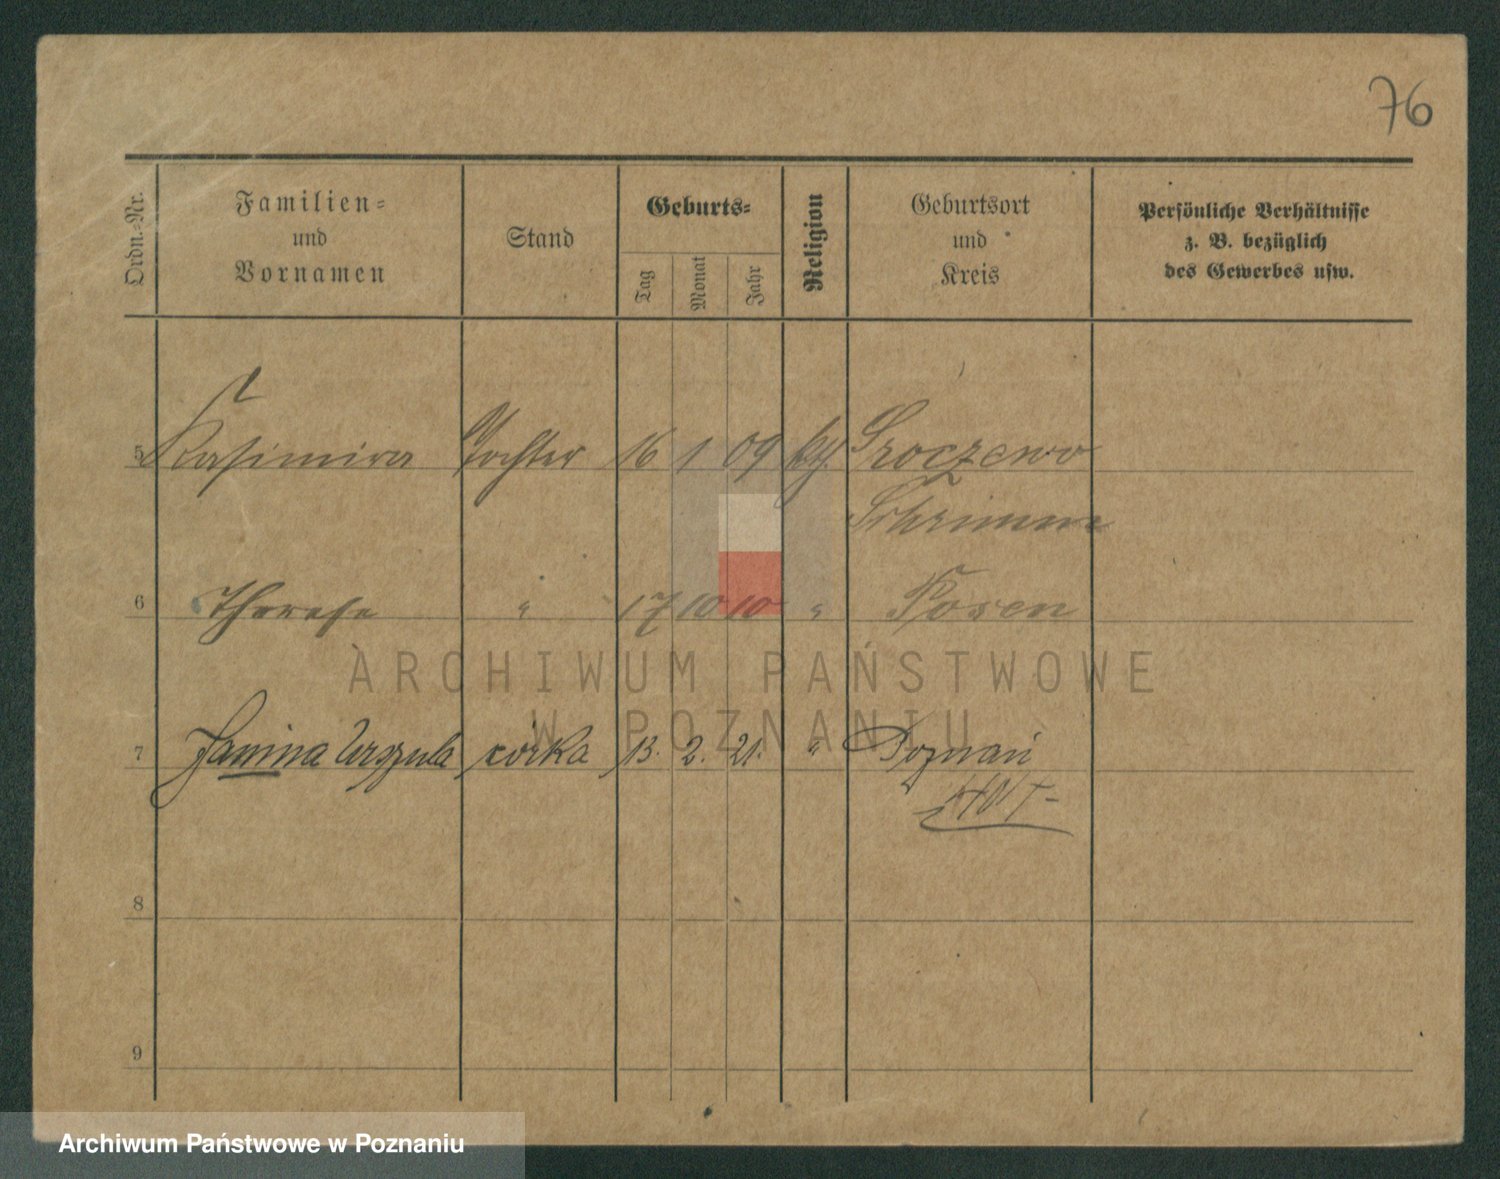 76
Ordn.-Nr.
Familien-
und
Vornamen
Stand
Geburts-
Tag
Monat
Jahr
Religion
Geburtsort
und
Kreis
Persönliche Verhältnisse
z. B. bezüglich
des Gewerbes usw.
5 Kasimira Tochter 16 1 09 Sroczewo
Schrimm
6 Therese " 17 10 10 " Posen
ARCHIWUM PAŃSTWOWE
W POZNANIU
7 Janina Urszula córka 13. 2. 21. " Poznań
8
9
Archiwum Państwowe w Poznaniu